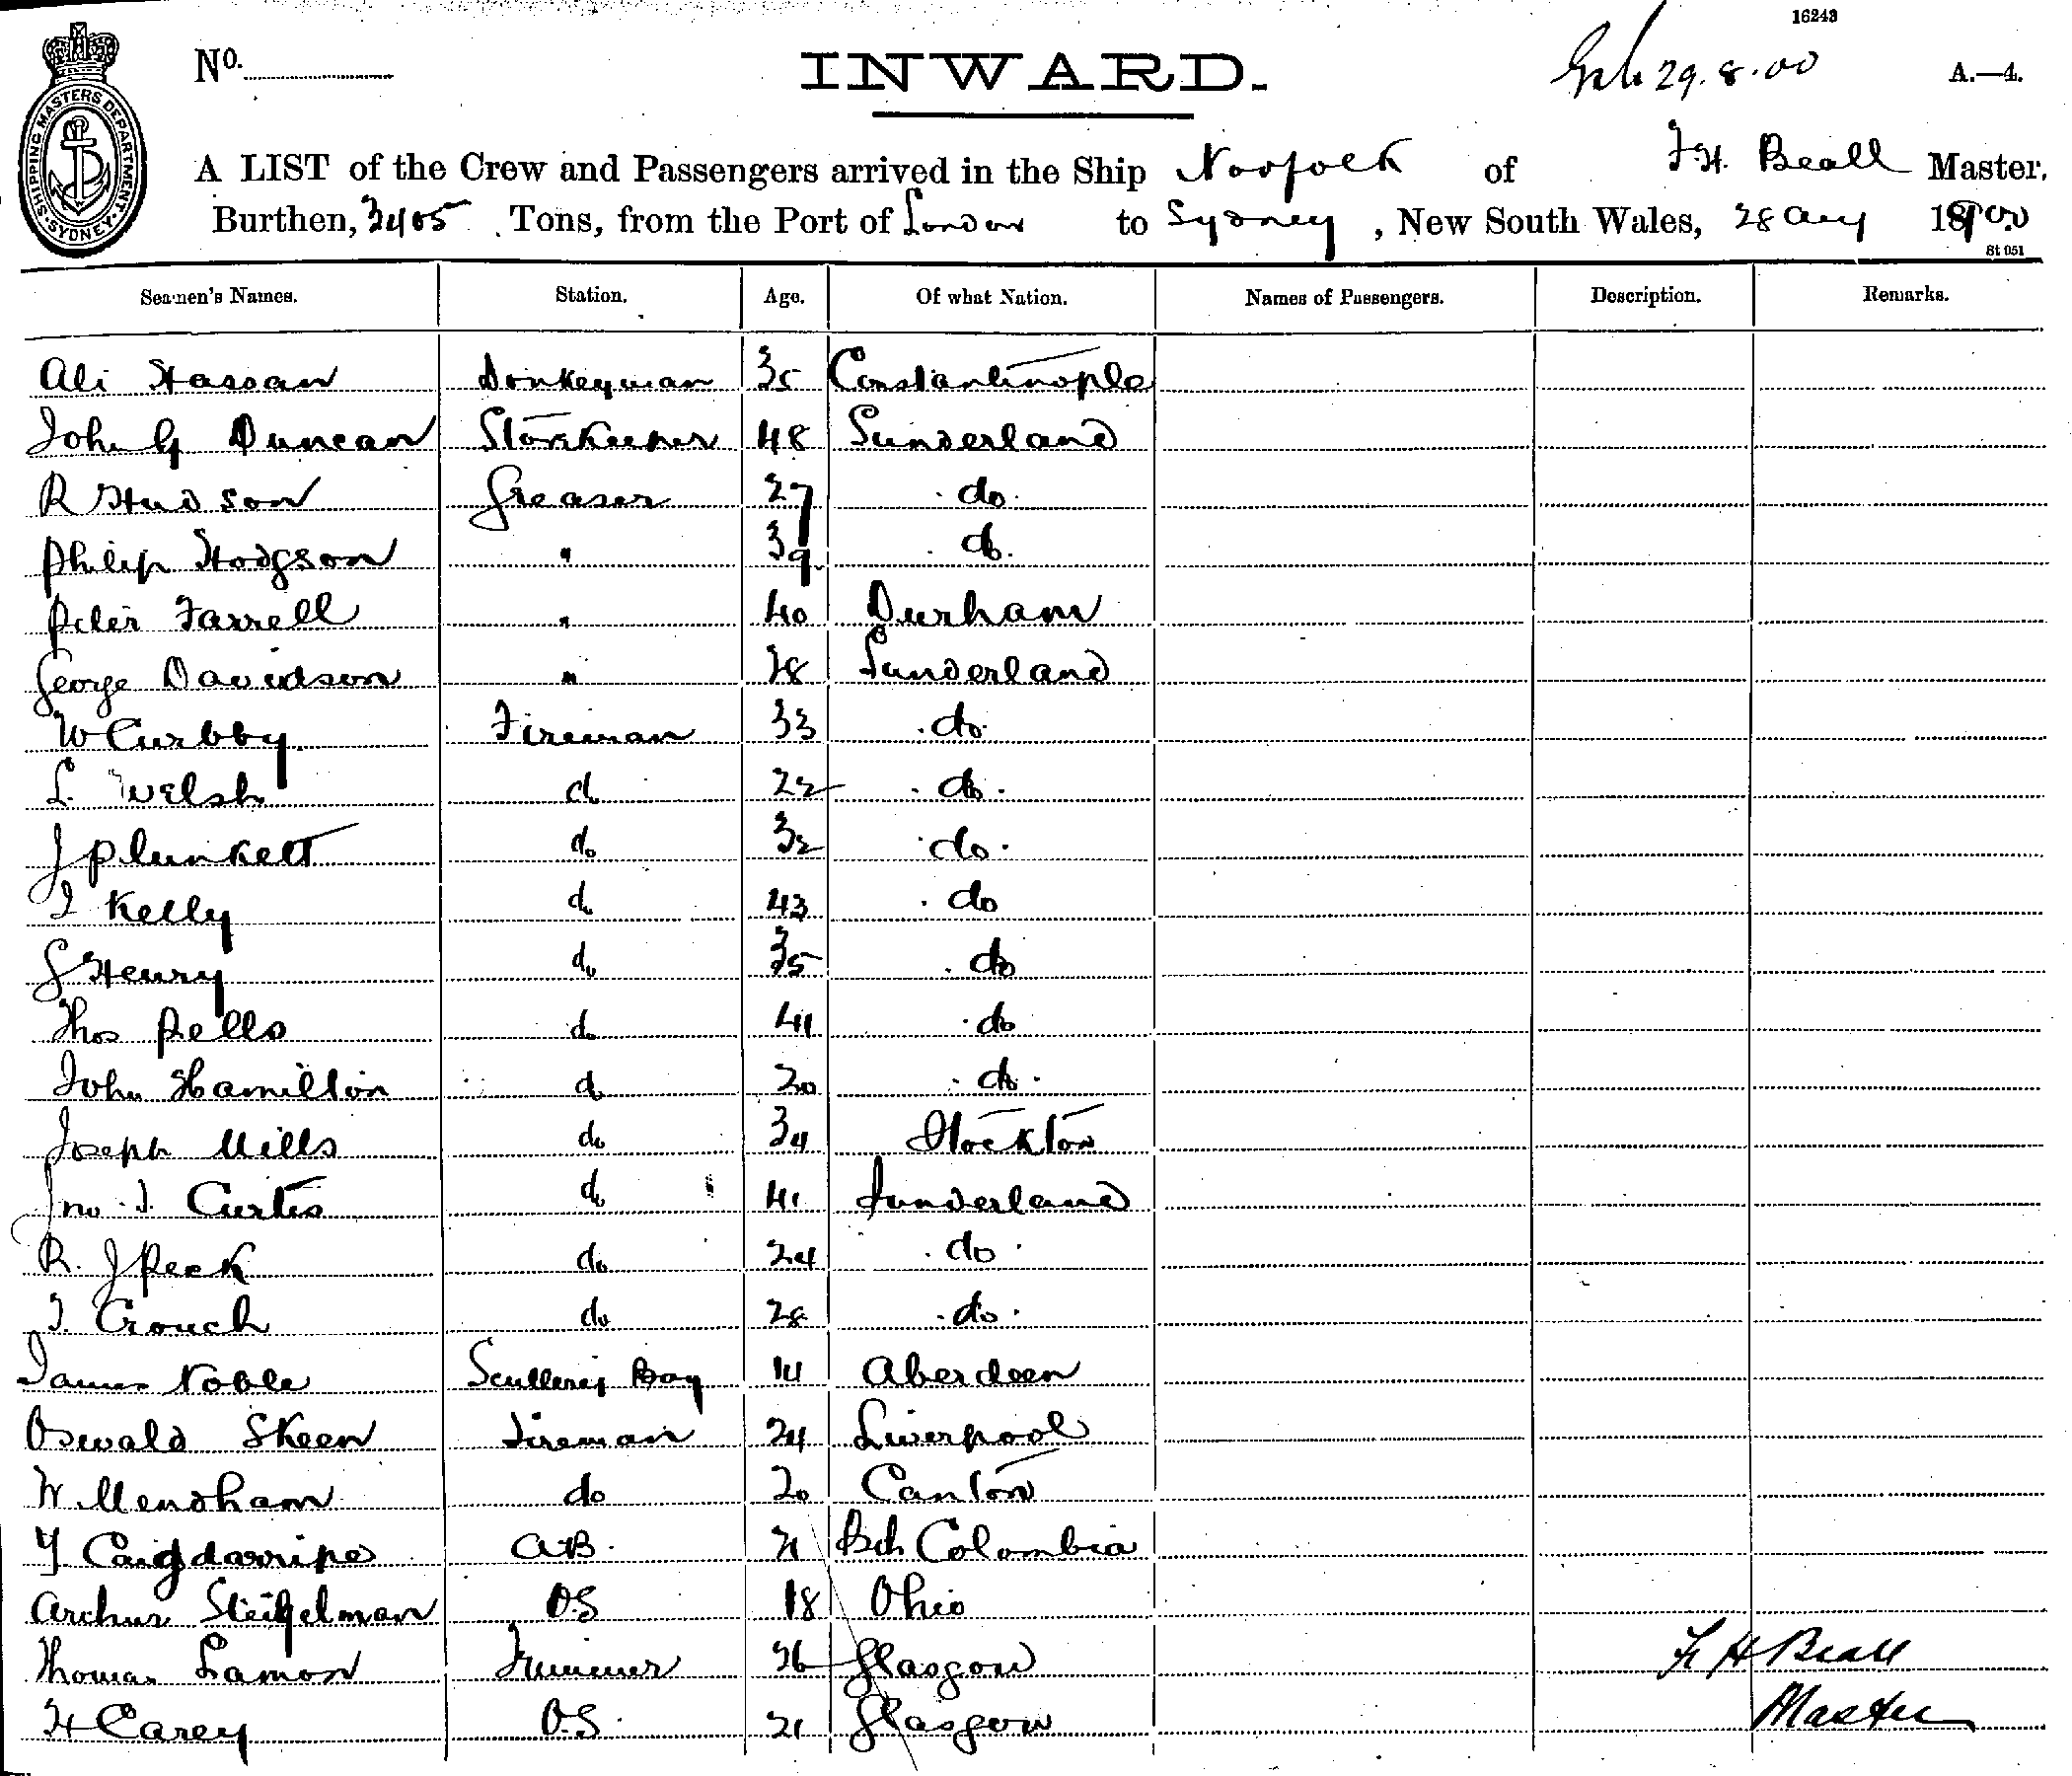 16243
No.
INWARD.
29.8.00
A.—4.
SHIPPING MASTERS DEPARTMENT. SYDNEY.
A LIST of the Crew and Passengers arrived in the Ship Norfolk of F.H. Beall Master,
Burthen, 3405 Tons, from the Port of London to Sydney, New South Wales, 28 Aug 1900
St 051
Seamen's Names. Station. Age. Of what Nation. Names of Passengers. Description. Remarks.
Ali Hassan Donkeyman 35 Constantinople
John G Duncan Storekeeper 48 Sunderland
R Hudson Greaser 27 do.
Philip Hodgson " 39 do.
Peter Farrell " 40 Durham
George Davidson " 28 Sunderland
W Curbby Fireman 33 do
L. Welsh do 22 do.
J Plunkett do 32 do.
T Kelly do 43 do
G Henry do 35 do
Thos Pells do 41 do
John Hamilton do 20 do.
Joseph Mills do 34 Stockton
Jno. T. Curtis do 41 Sunderland
R. J Peck do 24 do.
T. Crouch do 28 do.
James Noble Scullery Boy 14 Aberdeen
Oswald Skeen Fireman 24 Liverpool
W. Mendham do 20 Canton
A.B. 21 Bch Colombia
Arthur Steigelman O.S 18 Ohio
Thomas Lamon Trimmer 26 Glasgow
F H Beall
H Carey O.S. 21 Glasgow
Master